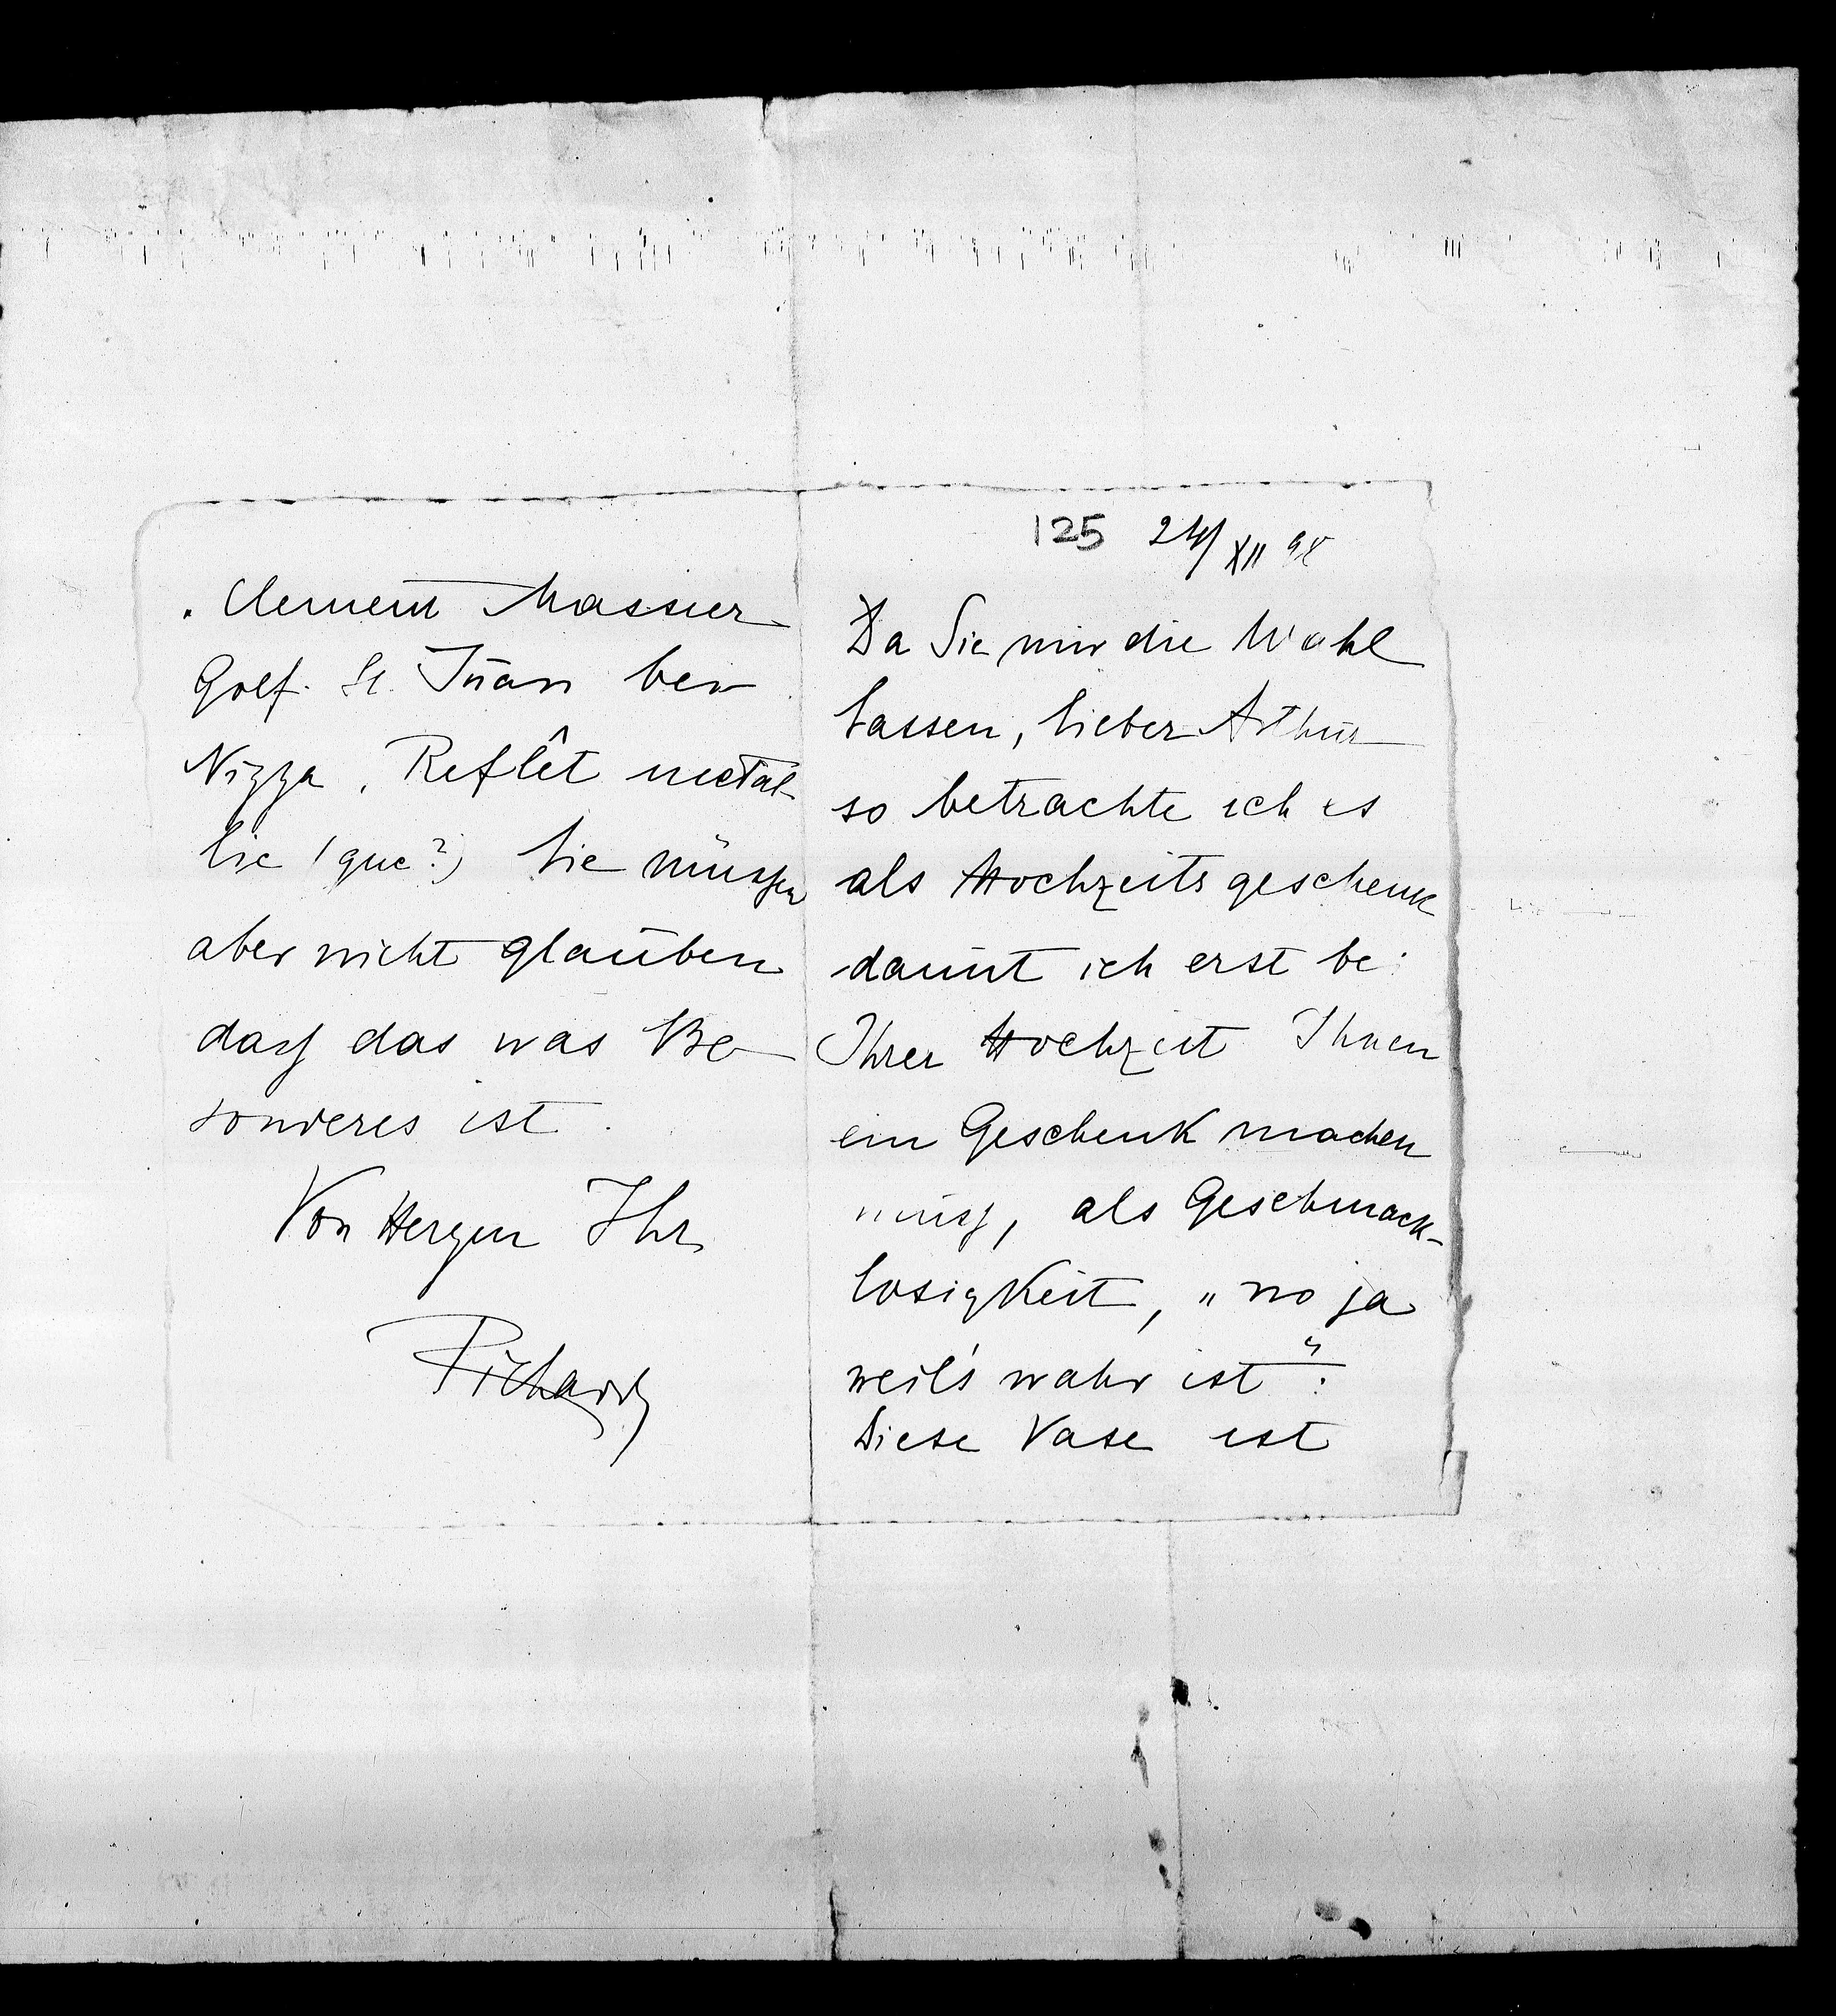 125 24/XII 98
Da Sie mir die Wahl
lassen, lieber Arthur
so betrachte ich es
als Hochzeitsgeschenk
damit ich erst bei
Ihrer Hochzeit Ihnen
ein Geschenk machen
muß, als Geschmack-
losigkeit, „no ja
weil's wahr ist“.
Diese Vase ist
. Clement Massier
Golf. St. Juan bei
Nizza. Reflêt metal-
lic (que?) Sie müssen
aber nicht glauben
daß das was Be-
sonderes ist.
Von Herzen Ihr
Richard